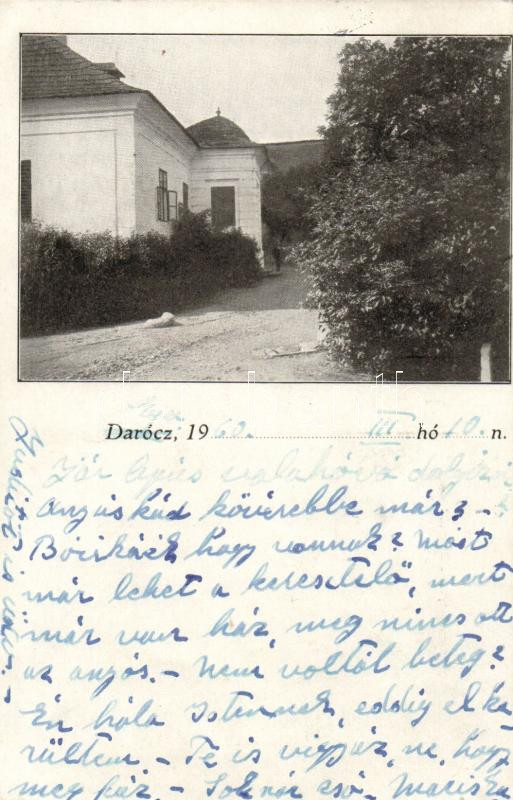 Darócz, 19 60. III hó 10. n.
Jár Apus valahová
Anyáskád kövérebbe már? -
Böiskéék hogy vannak? Most
már lehet a keresztelő, mert
már van ház, meg nincs ott
az anyós. - Nem voltál beteg?
Én hála Istennek, eddig elke-
rültem. - Te is vigyáz, ne, hogy
meg fáz. - Sok csó. Mariska